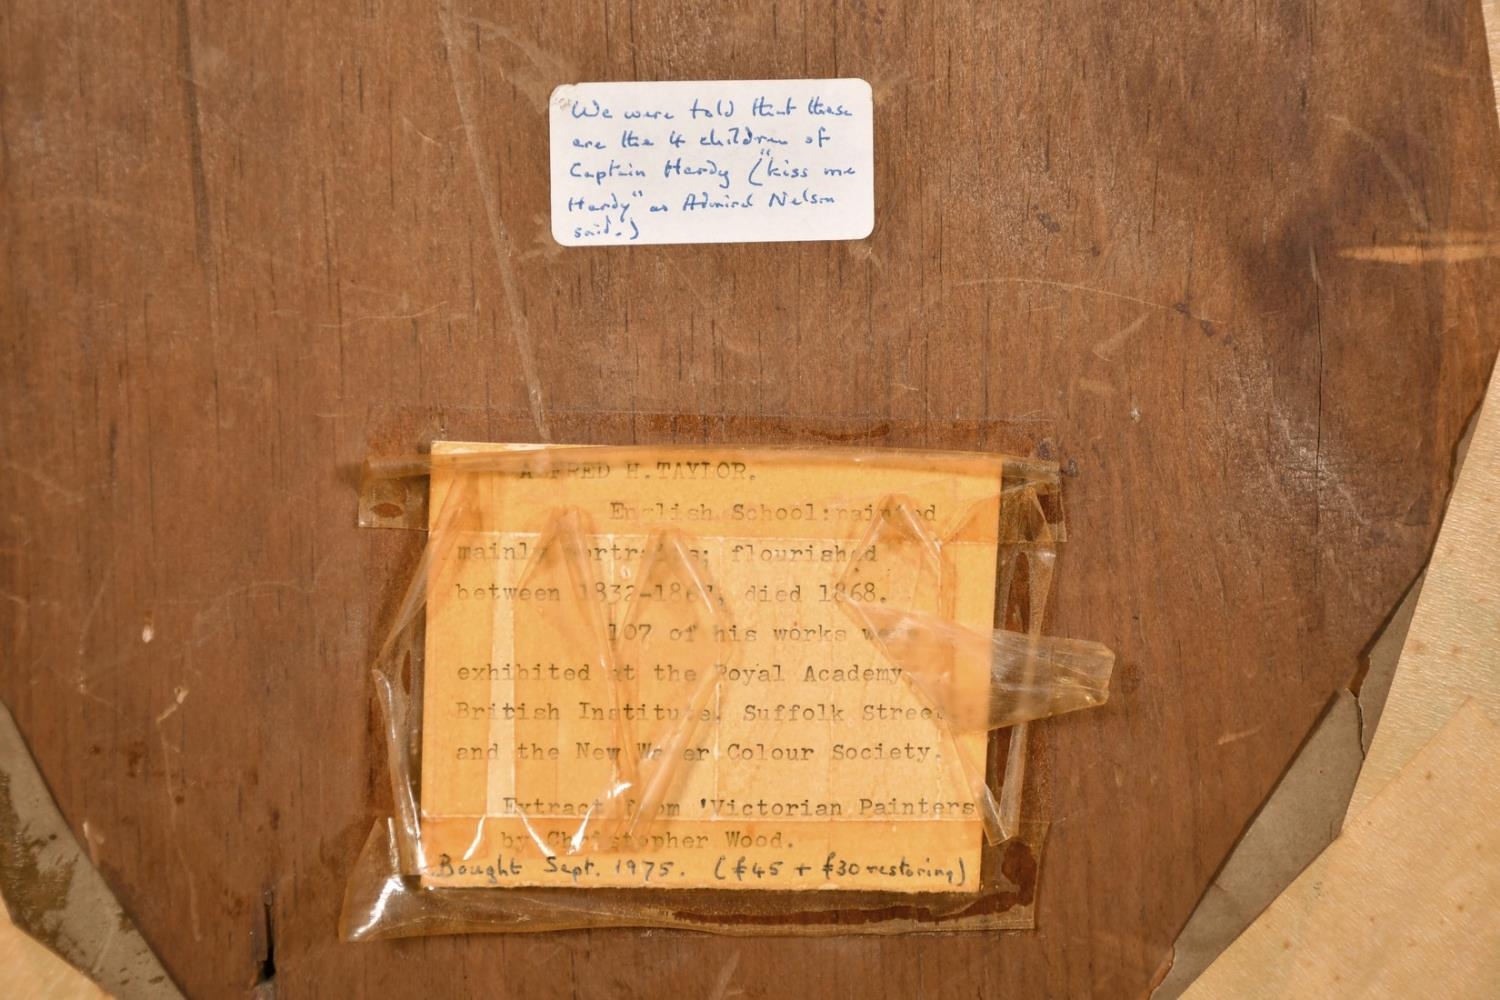 We were told that these
are the 4 children of
Captain Hardy ("kiss me
Hardy" as Admiral Nelson
said.)
ALFRED H.TAYLOR.
English School:painted
mainly portraits; flourished
between 1832-1867, died 1868.
107 of his works were
exhibited at the Royal Academy
British Institute, Suffolk Street,
and the New Water Colour Society.
Extract from 'Victorian Painters
by Christopher Wood.
Bought Sept. 1975. (£45 + £30 restoring)